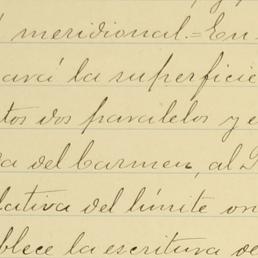 meridional.= En
ará la superficie
tos dos paralelos y e
a del Carmen, al
lativa del límite
blece la escritura de